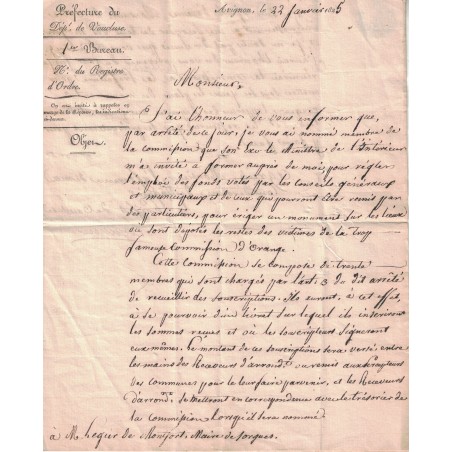 Préfecture du
Dépt. de Vaucluse.
1er Bureau.
No. du Registre
d'Ordre.
On est invité à rappeler en
marge de la réponse, les indications
ci-dessus.
Objet.
Avignon, le 22 Janvier 1825
Monsieur,
J'ai l'honneur de vous informer que,
par arrêté de ce jour, je vous ai nommé membre de
la commission que son Exc. le Ministre de l'Intérieur
m'a invité à former auprès de moi, pour régler
l'emploi des fonds votés par les Conseils généraux
et municipaux et de ceux qui pourront être remis par
des particuliers, pour ériger un monument sur les lieux
où sont déposés les restes des victimes de la trop
fameuse Commission d'Orange.
Cette Commission se compose de trente
membres qui sont chargés par l'art. 3 du dit arrêté
de recueillir des souscriptions. Ils auront, à cet effet,
à se pourvoir d'un carnet sur lequel ils inscriront
les sommes reçues et où les souscripteurs signeront
eux mêmes. Le montant de ces souscriptions sera versé, entre
les mains des Receveurs d'arrondt. ou remis aux Percepteurs
des Communes pour le leur faire parvenir, et les Receveurs
d'arrondt. se mettront en correspondance avec le trésorier de
la commission lorsqu'il sera nommé.
à M. Leguer de Monfort, Maire de Sorgues.